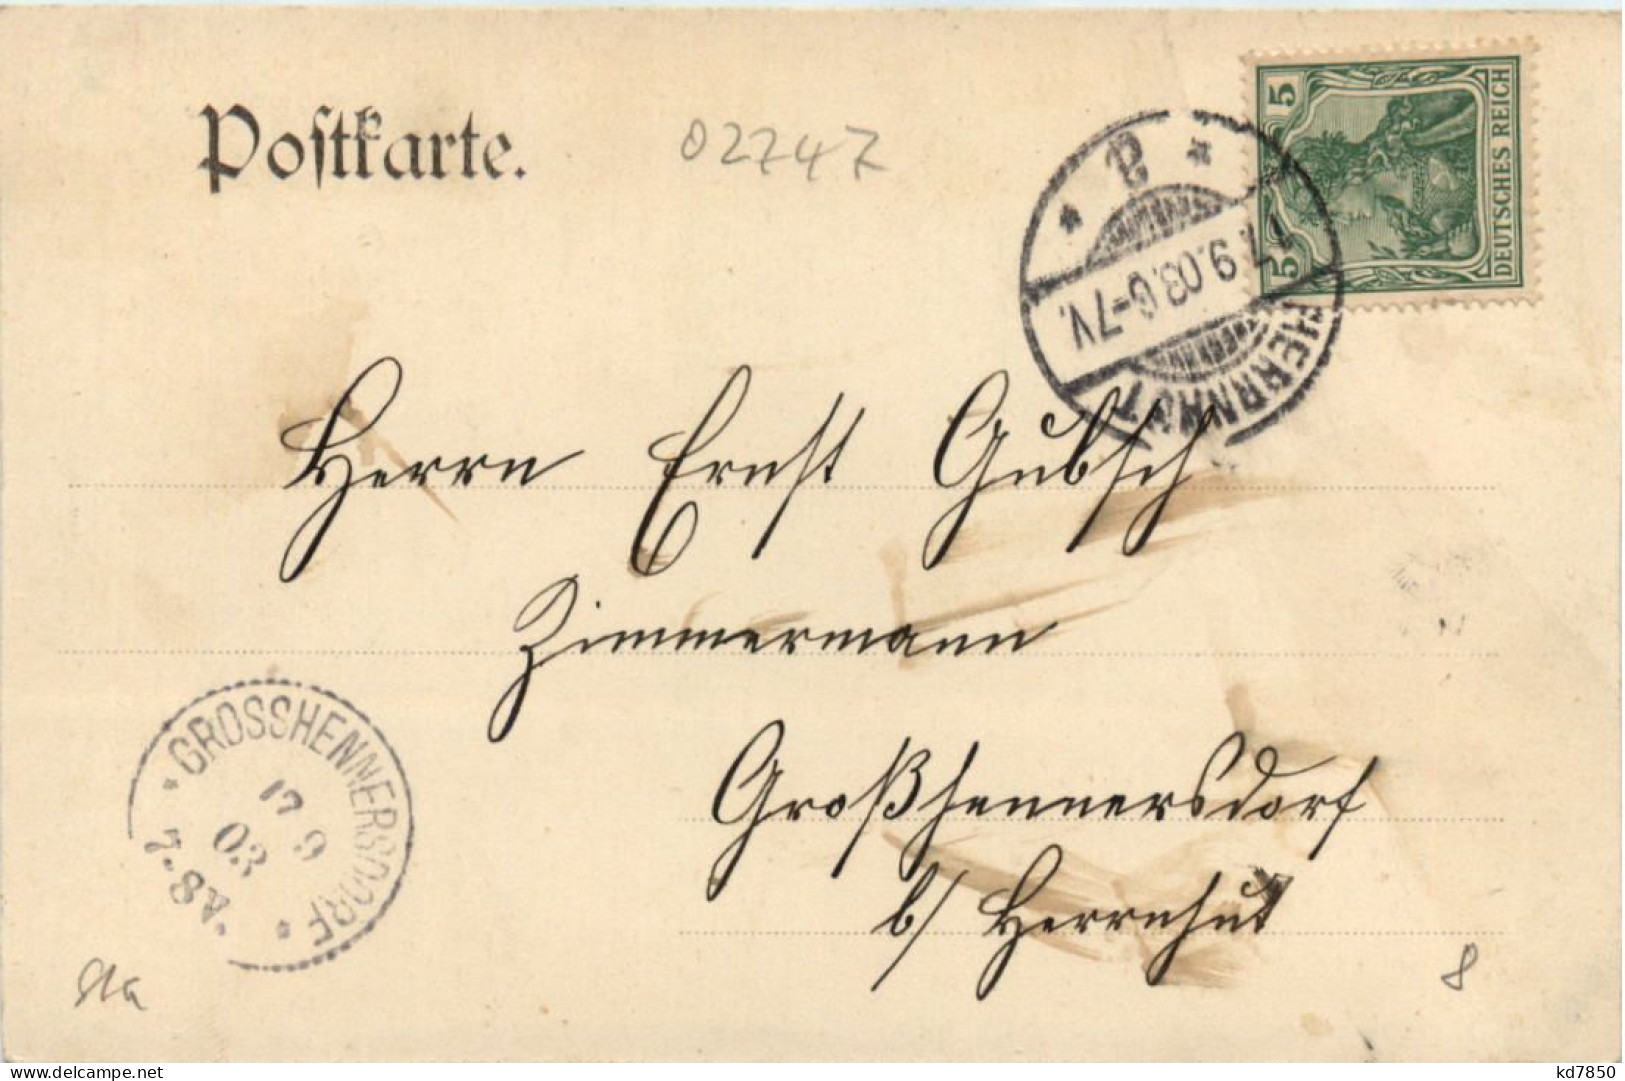 Postkarte.
02747
5
5
DEUTSCHES REICH
a
17.9.03.6-7V.
HERRNHUT
Herrn Ernst Gubsch
Zimmermann
Großhennersdorf
b/ Herrnhut
GROSSHENNERSDORF
17 9
03
7-8V.
8
kd7850